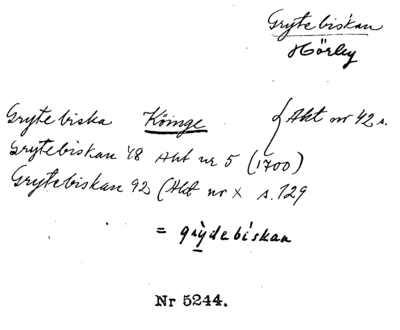 Grytebiskan
Hörby
Grytebiska Köinge { Akt nr 42 s.
Grytebiskan 48 Akt nr 5 (1700)
Grytebiskan 92 (Akt nr x s. 129
= grỳdebiskan
Nr 5244.